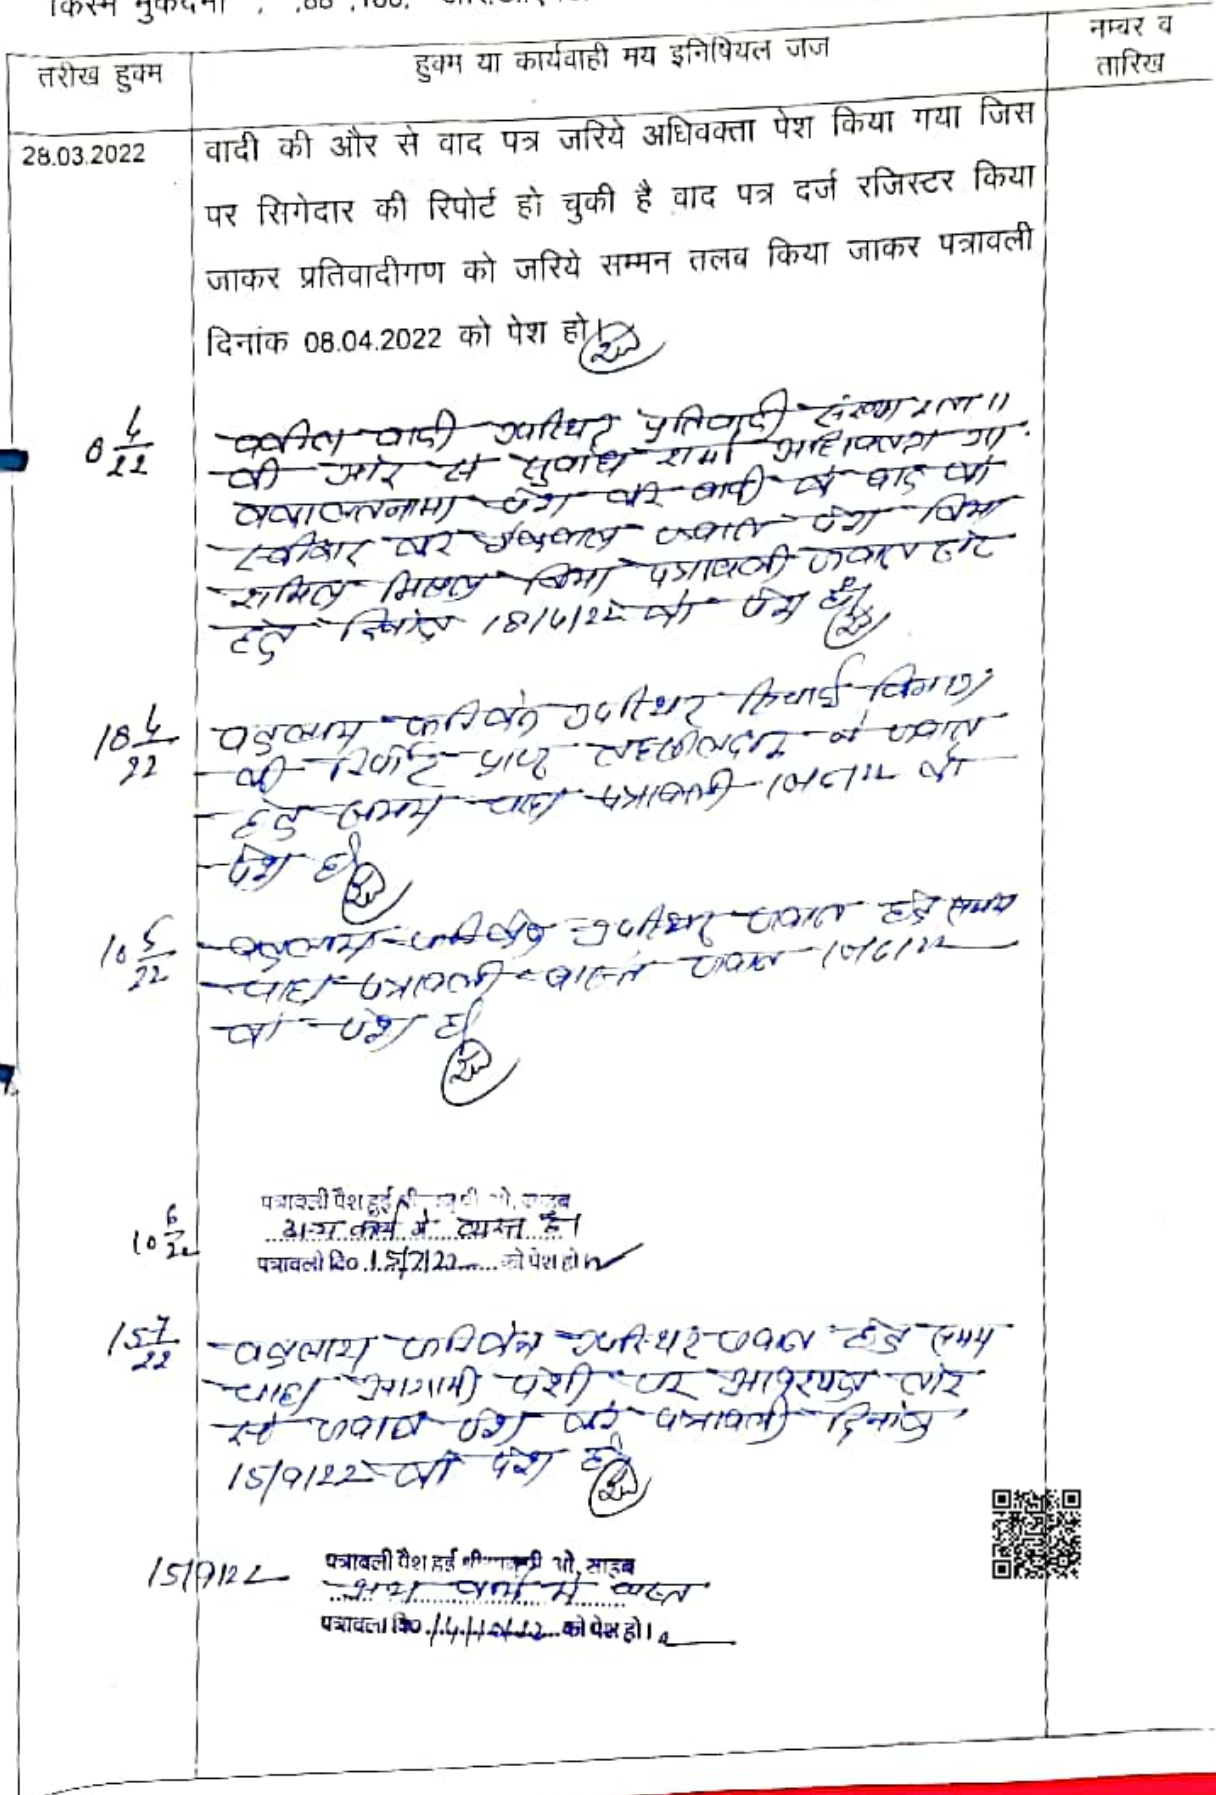 किस्म मुकदमा
तारीख हुक्म
हुक्म या कार्यवाही मय इनिषियल जज
नम्बर व
तारिख
28.03.2022
वादी की और से वाद पत्र जरिये अधिवक्ता पेश किया गया जिस
पर सिगेदार की रिपोर्ट हो चुकी है वाद पत्र दर्ज रजिस्टर किया
जाकर प्रतिवादीगण को जरिये सम्मन तलब किया जाकर पत्रावली
दिनांक 08.04.2022 को पेश हो।
8 4/22
वकील वादी उपस्थित प्रतिवादी संख्या
की ओर से सुबोध शर्मा अधिवक्ता
वकालतनामा पेश कर वादी के वाद को
स्वीकार कर जवाब पेश किया
शामिल मिसल किया पत्रावली जवाब
हेतु दिनांक 18/4/22 को पेश हो
18 4/22
वकुलाय फरिकेन उपस्थित सिंचाई विभाग
की रिपोर्ट प्राप्त तहसीलदार ने जवाब
हेतु समय चाहा पत्रावली को
पेश हो
10 5/22
वकुलाय फरिकेन उपस्थित जवाब हेतु समय
चाहा पत्रावली वास्ते जवाब 10/6/22
को पेश हो
10 6/22
पत्रावली पेश हुई ओ. साहब
अन्य कार्य में व्यस्त है।
पत्रावली दि० 15/7/22 को पेश हो
15 7/22
वकुलाय फरिकेन उपस्थित जवाब हेतु समय
चाहा आगामी पेशी पर आवश्यक तौर
से जवाब पेश करे पत्रावली दिनांक
15/9/22 को पेश हो
15/9/22
पत्रावली पेश हुई ओ. साहब
अन्य कार्य में व्यस्त
पत्रावली दि० 14/10/22 को पेश हो।